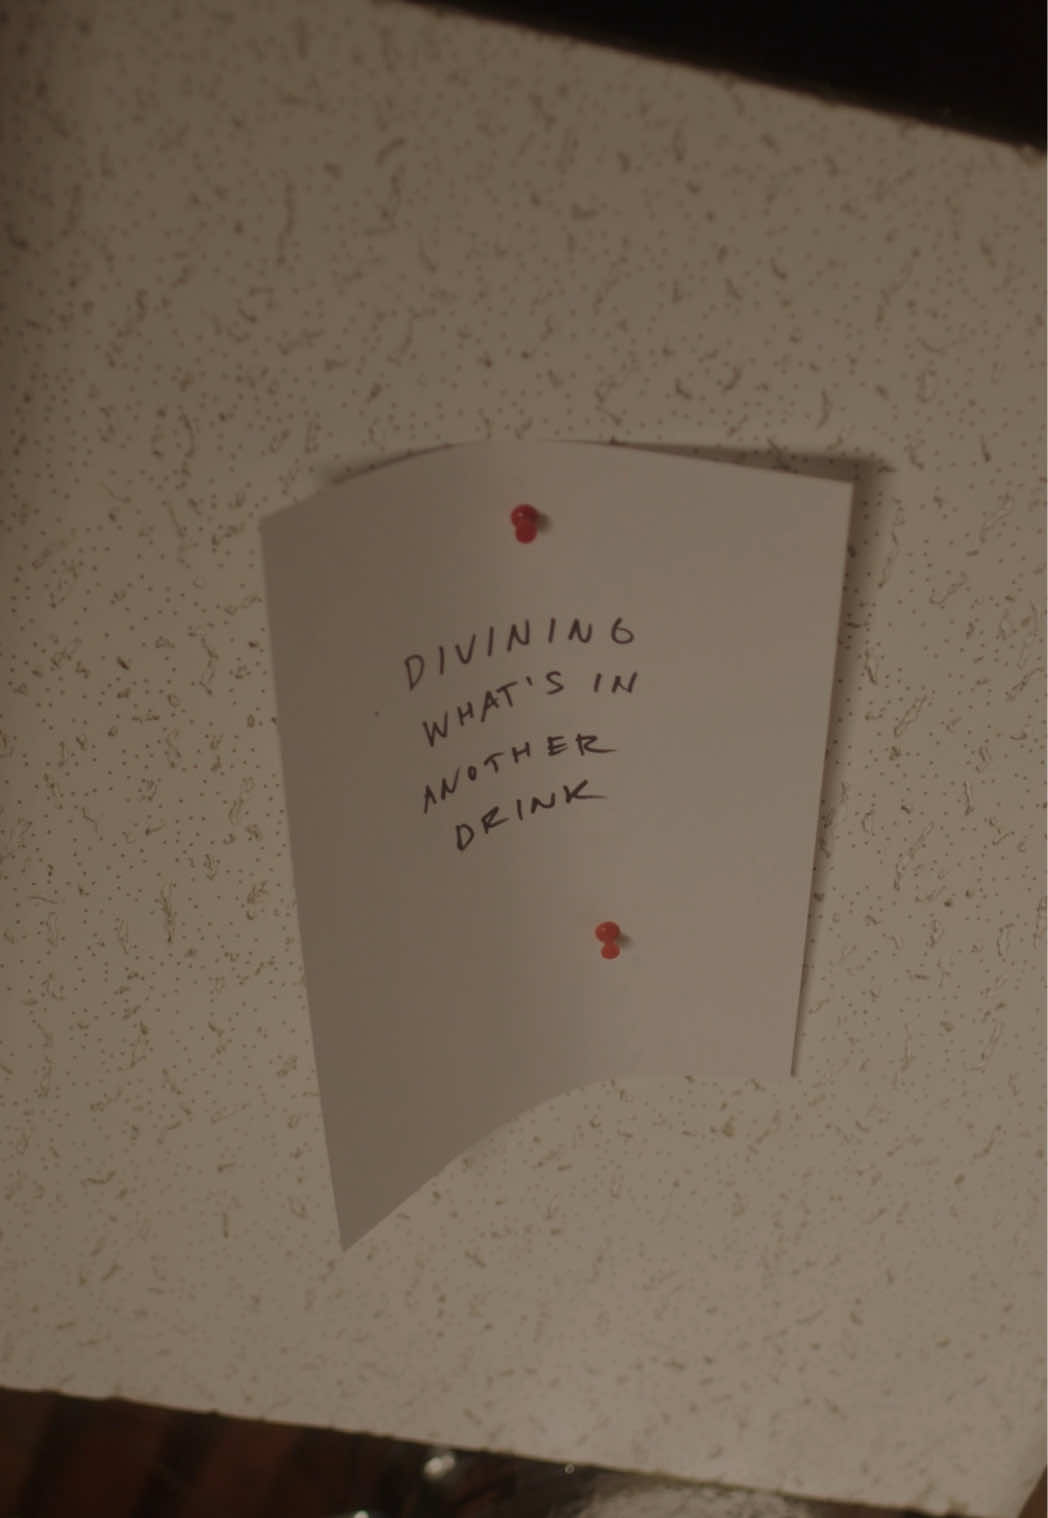 DIVINING
WHAT'S IN
ANOTHER
DRINK